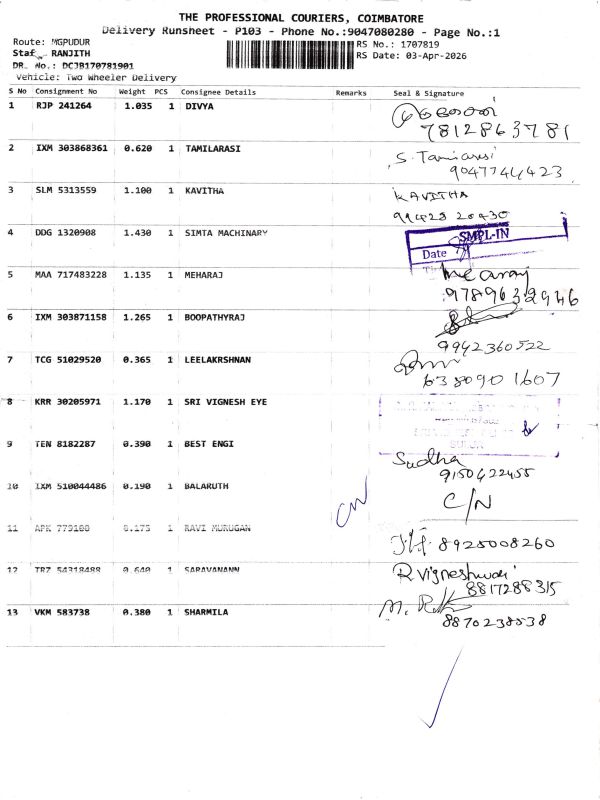 THE PROFESSIONAL COURIERS, COIMBATORE
Delivery Runsheet - P103 - Phone No.:9047080280 - Page No.:1
Route: MGPUDUR
RS No.: 1707819
Staf RANJITH
RS Date: 03-Apr-2026
DR No.: DCJB170781901
Vehicle: Two Wheeler Delivery
S No Consignment No Weight PCS Consignee Details Remarks Seal & Signature
1 RJP 241264 1.035 1 DIVYA
7812863781
2 IXM 303868361 0.620 1 TAMILARASI S. Tamilarasi
9047744423
3 SLM 5313559 1.100 1 KAVITHA KAVITHA
99428 20430
4 DDG 1320908 1.430 1 SIMTA MACHINARY SMPL-IN
Date
5 MAA 717483228 1.135 1 MEHARAJ Mearaj
9789632946
6 IXM 303871158 1.265 1 BOOPATHYRAJ
9942360522
7 TCG 51029520 0.365 1 LEELAKRSHNAN
6380901607
8 KRR 30205971 1.170 1 SRI VIGNESH EYE
9 TEN 8182287 0.390 1 BEST ENGI Sudha
9150422455
10 IXM 510044486 0.190 1 BALARUTH CN C/N
11 APK 779108 0.175 1 RAVI MURUGAN 8925008260
12 TRZ 54318488 0.640 1 SARAVANANN R. Vigneshwari
8817288315
13 VKM 583738 0.380 1 SHARMILA
8870238538